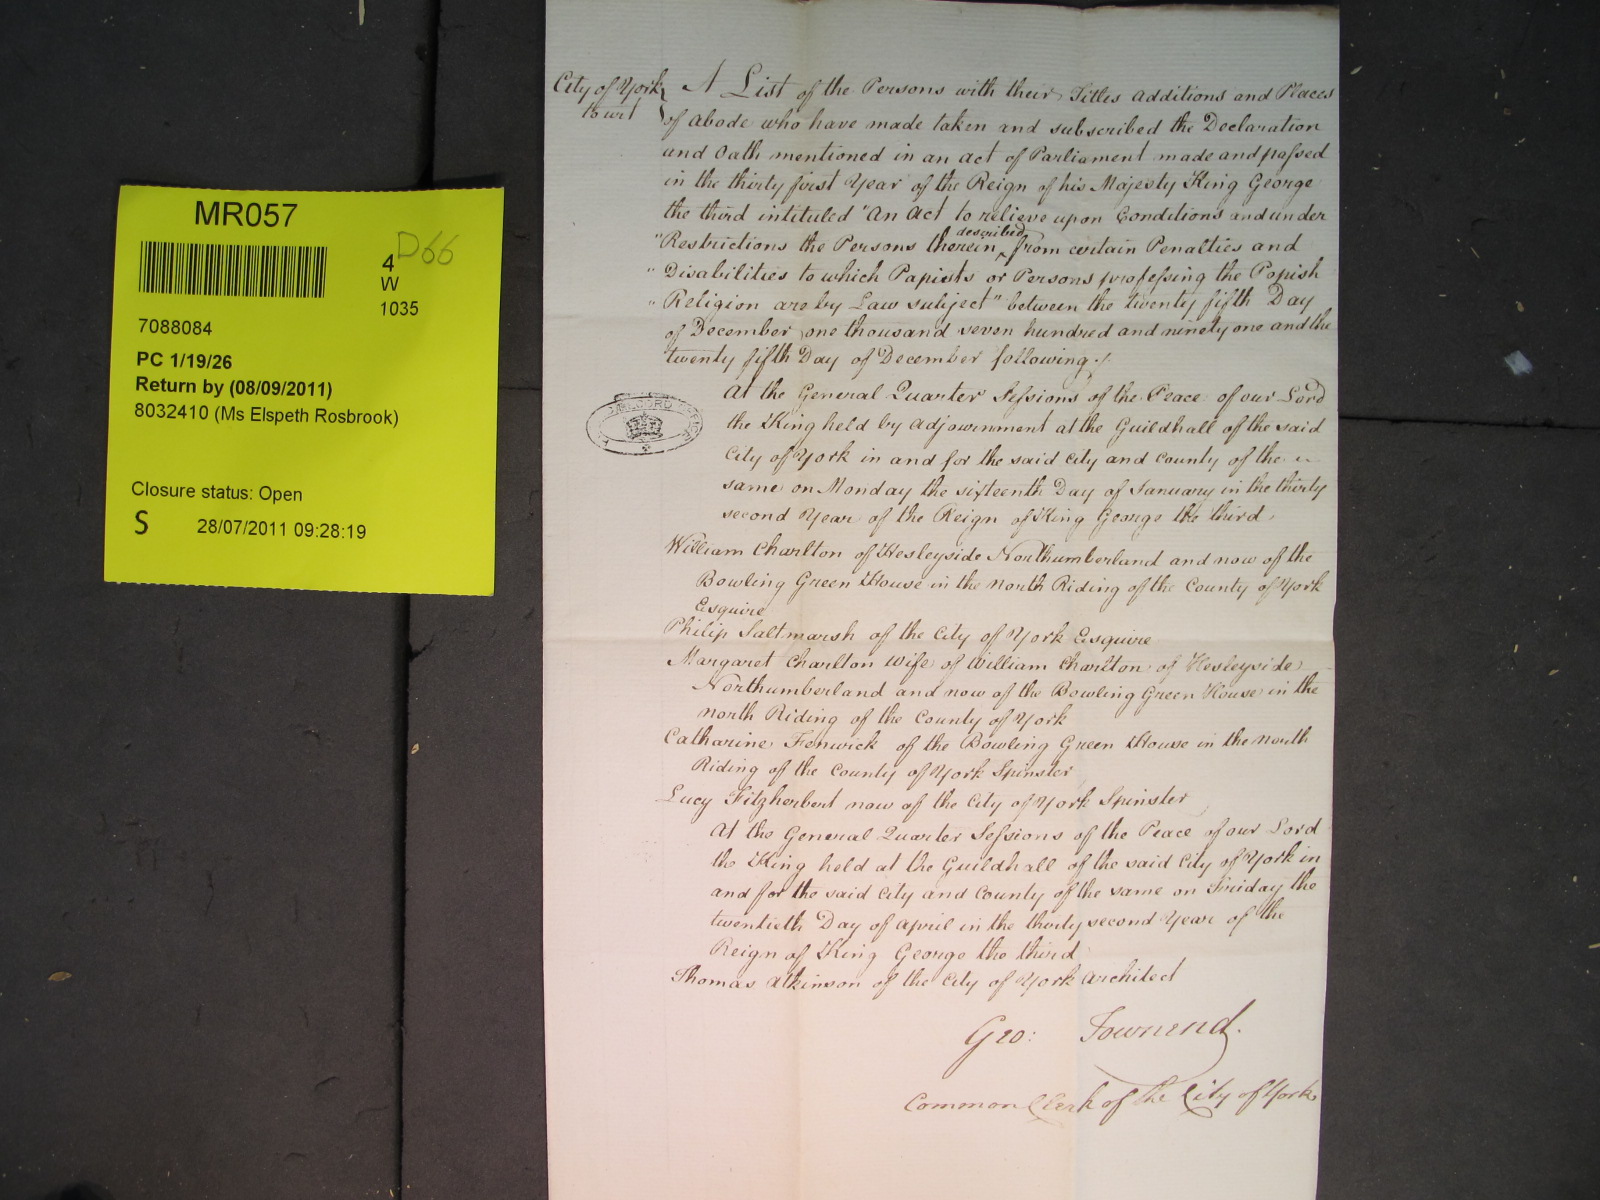 MR057
D66
4
W
1035
7088084
PC 1/19/26
Return by (08/09/2011)
8032410 (Ms Elspeth Rosbrook)
Closure status: Open
S 28/07/2011 09:28:19
City of York
to wit
A List of the Persons with their Titles additions and Places
of abode who have made taken and subscribed the Declaration
and Oath mentioned in an act of Parliament made and passed
in the thirty first Year of the Reign of his Majesty King George
the third intituled "An Act to relieve upon Conditions and under
"Restrictions the Persons therein described from certain Penalties and
"Disabilities to which Papists or Persons professing the Popish
"Religion are by Law subject" between the twenty fifth Day
of December one thousand seven hundred and ninety one and the
twenty fifth Day of December following./.
RECORD OFFICE
At the General Quarter Sessions of the Peace of our Lord
the King held by Adjournment at the Guildhall of the said
City of York in and for the said City and County of the
same on Monday the sixteenth Day of January in the thirty
second Year of the Reign of King George the third
William Charlton of Hesleyside Northumberland and now of the
Bowling Green House in the North Riding of the County of York
Esquire
Philip Saltmarsh of the City of York Esquire
Margaret Charlton Wife of William Charlton of Hesleyside
Northumberland and now of the Bowling Green House in the
north Riding of the County of York
Catharine Fenwick of the Bowling Green House in the north
Riding of the County of York Spinster
Lucy Fitzherbert now of the City of York Spinster
At the General Quarter Sessions of the Peace of our Lord
the King held at the Guildhall of the said City of York in
and for the said City and County of the same on Friday the
twentieth Day of April in the thirty second Year of the
Reign of King George the third
Thomas Atkinson of the City of York Architect
Geo: Townend.
Common Clerk of the City of York